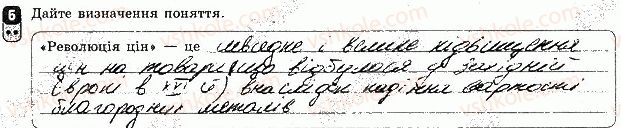 6 Дайте визначення поняття.
«Революція цін» — це швидке і велике підвищення
цін на товари (що відбулося в Західній
Європі в XVI ст) внаслідок падіння вартості
благородних металів